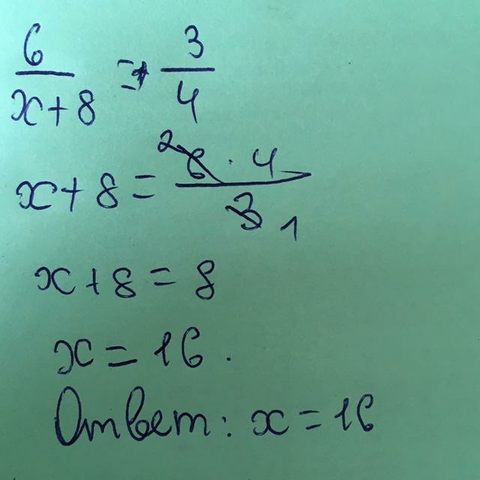 6/(x+8) = 3/4
x+8 = (6·4)/3 2 1
x+8=8
x=16.
Ответ: x=16